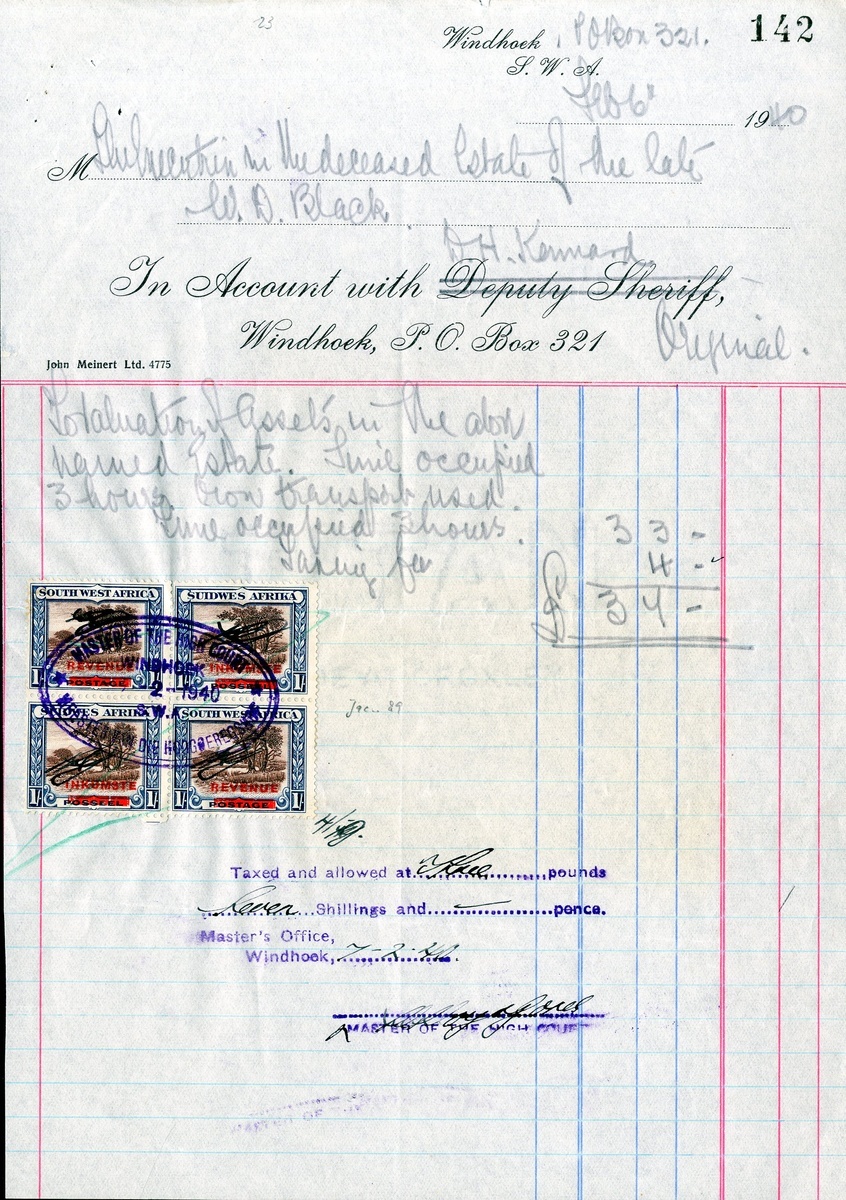 23
142
Windhoek, P O Box 321.
S. W. A.
Feb 6" 1940
M The Executrix in the deceased Estate of the late
W. D. Black
D H. Kennard.
In Account with Deputy Sheriff,
Windhoek, P. O. Box 321
Original.
John Meinert Ltd. 4775
To valuation of assets in the abov
named Estate. Time occupied
3 hours. Own transport used.
Time occupied 3 hours. 3 3 -
Taxing fee 4 -
£ 3 7 -
SOUTH WEST AFRICA
SUIDWES AFRIKA
REVENUE
INKOMSTE
POSTAGE
POSSEEL
1/- 1/- 1/- 1/-
MASTER OF THE HIGH COURT
WINDHOEK
2 - 1940
S.W.A.
MEESTER VAN DIE HOOGGEREGSHOF
SUIDWES AFRIKA
SOUTH WEST AFRICA
INKOMSTE
REVENUE
POSSEEL
POSTAGE
1/- 1/- 1/- 1/-
Taxed and allowed at Three pounds
Seven Shillings and — pence.
Master's Office,
Windhoek, 7-2-40.
MASTER OF THE HIGH COURT